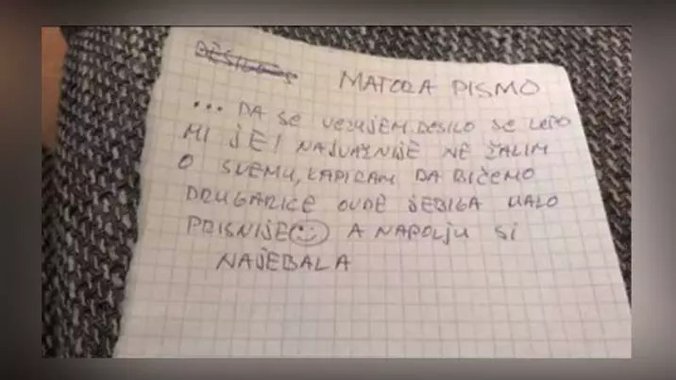 MATORA PISMO
... DA SE VEZUJEM DESILO SE LEPO
MI JE! NAJVAŽNIJE NE ŽALIM
O SVEMU, KAPIRAM DA BIĆEMO
DRUGARICE OVDE JEBIGA MALO
PRISNIJE A NAPOLJU SI
NAJEBALA